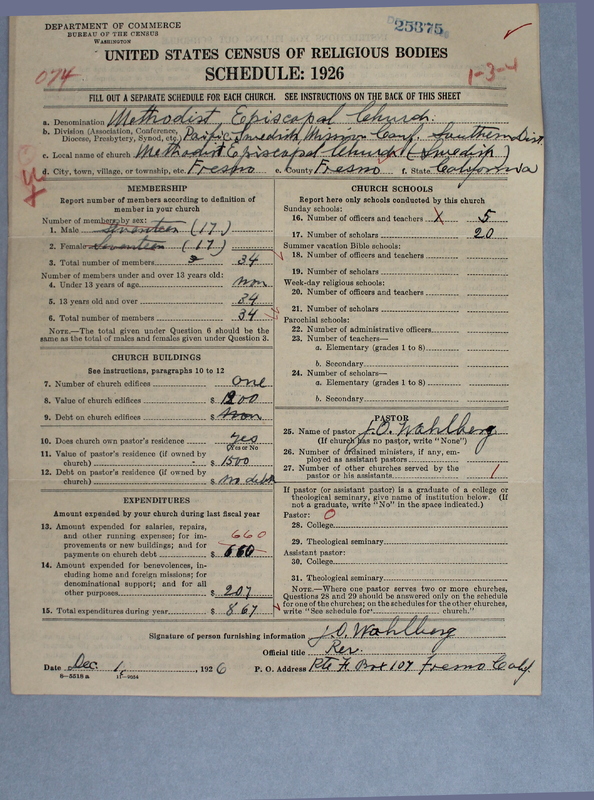 DEPARTMENT OF COMMERCE
BUREAU OF THE CENSUS
WASHINGTON
25375
UNITED STATES CENSUS OF RELIGIOUS BODIES
SCHEDULE: 1926
074
1-3-4
FILL OUT A SEPARATE SCHEDULE FOR EACH CHURCH. SEE INSTRUCTIONS ON THE BACK OF THIS SHEET
a. Denomination Methodist Episcopal Church.
b. Division (Association, Conference, Diocese, Presbytery, Synod, etc.) Pacific Swedish Mission Conf. Southern Dist.
c. Local name of church Methodist Episcopal Church (Swedish)
d. City, town, village, or township, etc. Fresno e. County Fresno f. State California
MEMBERSHIP
Report number of members according to definition of member in your church
Number of members by sex:
1. Male Seventeen (17)
2. Female Seventeen (17)
3. Total number of members 34
Number of members under and over 13 years old:
4. Under 13 years of age non
5. 13 years old and over 34
6. Total number of members 34
NOTE.—The total given under Question 6 should be the same as the total of males and females given under Question 3.
CHURCH BUILDINGS
See instructions, paragraphs 10 to 12
7. Number of church edifices one
8. Value of church edifices $ 1200
9. Debt on church edifices $ non
10. Does church own pastor's residence yes
(Yes or No)
11. Value of pastor's residence (if owned by church) $ 1500
12. Debt on pastor's residence (if owned by church) $ no debt
EXPENDITURES
Amount expended by your church during last fiscal year
13. Amount expended for salaries, repairs, and other running expenses; for improvements or new buildings; and for payments on church debt $ 660
660
14. Amount expended for benevolences, including home and foreign missions; for denominational support; and for all other purposes $ 207
15. Total expenditures during year $ 867
CHURCH SCHOOLS
Report here only schools conducted by this church
Sunday schools:
16. Number of officers and teachers X 5
17. Number of scholars 20
Summer vacation Bible schools:
18. Number of officers and teachers
19. Number of scholars
Week-day religious schools:
20. Number of officers and teachers
21. Number of scholars
Parochial schools:
22. Number of administrative officers
23. Number of teachers—
a. Elementary (grades 1 to 8)
b. Secondary
24. Number of scholars—
a. Elementary (grades 1 to 8)
b. Secondary
PASTOR
25. Name of pastor J. O. Wahlberg
(If church has no pastor, write "None")
26. Number of ordained ministers, if any, employed as assistant pastors
27. Number of other churches served by the pastor or his assistants 1
If pastor (or assistant pastor) is a graduate of a college or theological seminary, give name of institution below. (If not a graduate, write "No" in the space indicated.)
Pastor: 0
28. College
29. Theological seminary
Assistant pastor:
30. College
31. Theological seminary
NOTE.—Where one pastor serves two or more churches, Questions 28 and 29 should be answered only on the schedule for one of the churches; on the schedules for the other churches, write "See schedule for church."
Signature of person furnishing information J. O. Wahlberg
Official title Rev.
Date Dec 1, 1926 P. O. Address Rte F. Box 107 Fresno Calif.
8—5518 a 11—9054